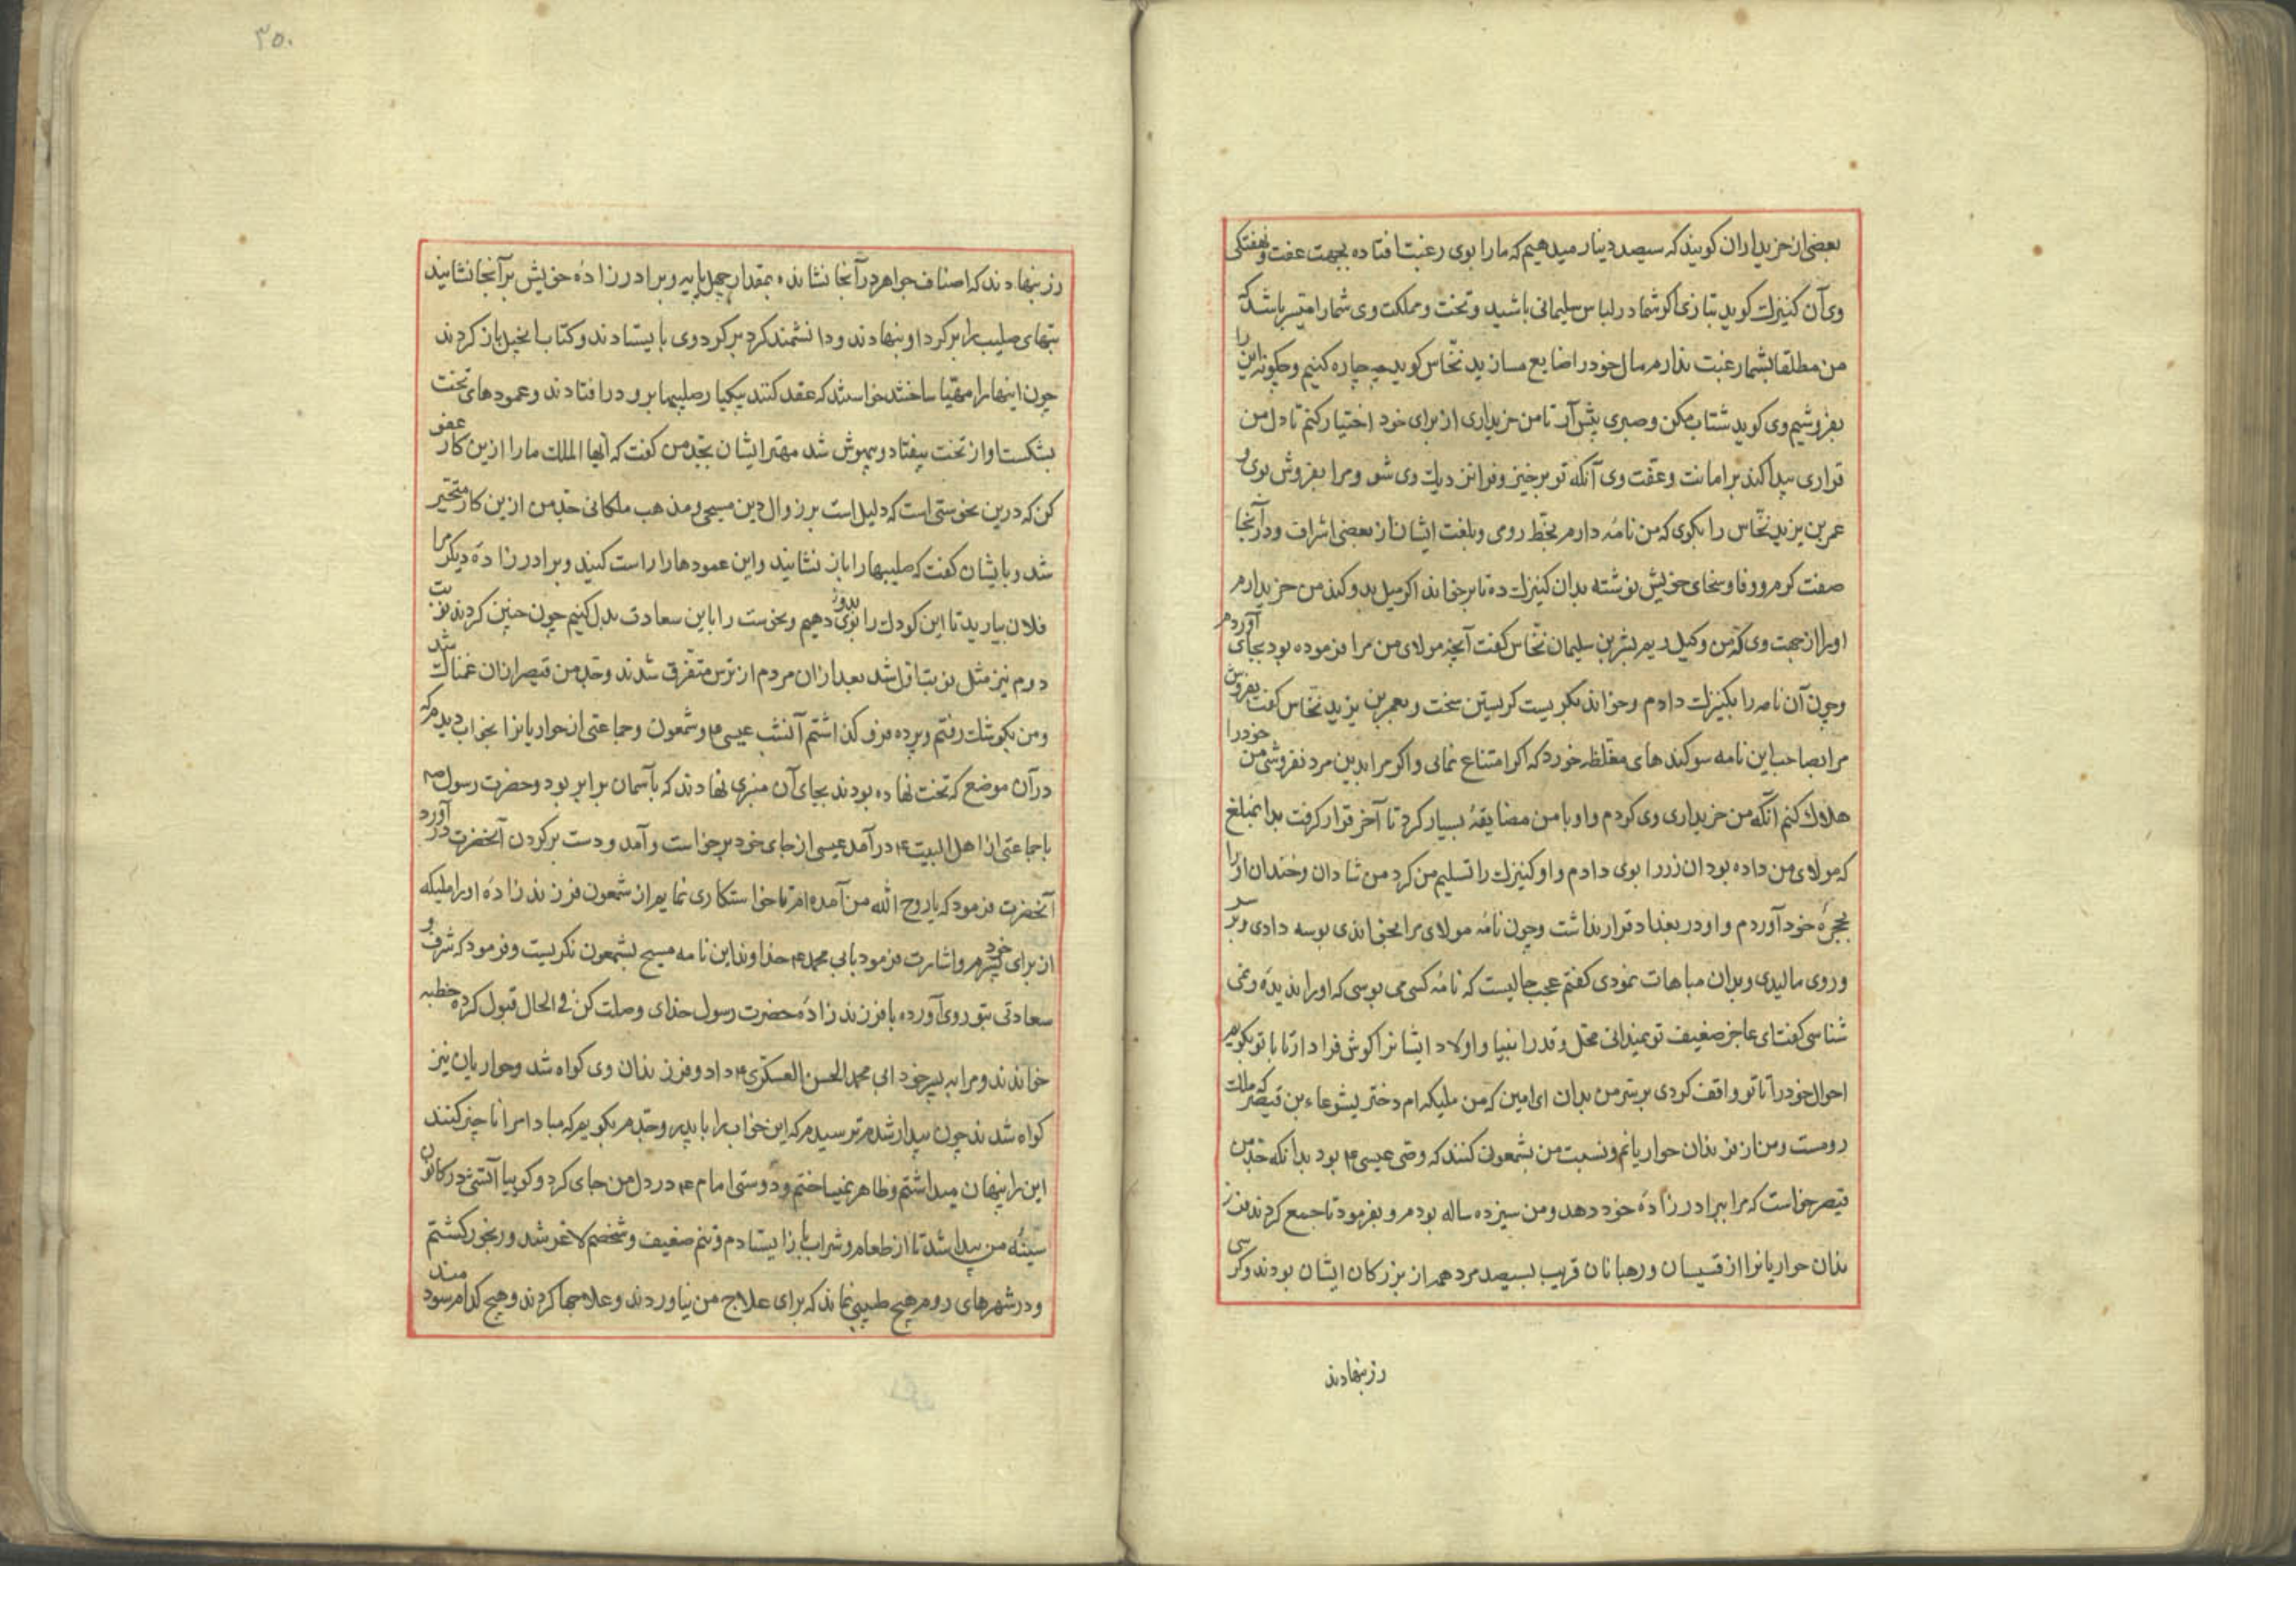 بعضی از خریداران کویند که سیصد دینار میدهیم که مارا بوی رغبت افتاده بجهت عفت و نهفتکی
وی آن کنیزک کوید بتازی اکر شما در لباس سلیمانی باشید و تخت و مملکت وی شمارا میسر باشد که
من مطلقا بشما رغبت ندارم مال خودرا ضایع مسازید نخاس کوید چه چاره کنیم و چکونه این را
بفروشیم وی کوید شتاب مکن و صبری پیش آر تا من خریداری از برای خود اختیار کنم تا دل من
قراری پیدا کند بر امانت و عفت وی آنکه تو برخیز و فرا نزدیک وی شو و مرا بفروش بوی و
عمر بن یزید نخاس را بکوی که من نامه دارم بخط رومی و بلغت ایشان از بعضی اشراف و در آنجا
صفت کرم و وفا و سخای خویش نوشته بدان کنیزک ده تا برخواند اکر میل بدو کند من خریدارم
اورا از جهت وی که من وکیل ویم بشر بن سلیمان نخاس کفت آنچه مولای من مرا فرموده بود بجای آوردم
و چون آن نامه را بکنیزک دادم و خواند بکریست کریستن سخت و بعمر بن یزید نخاس کفت بفروش
مرا بصاحب این نامه سوکندهای مغلظه خورد که اکر امتناع نمائی و اکر مرا بدین مرد نفروشی من خودرا
هلاک کنم آنکه من خریداری وی کردم و او با من مضایقهٔ بسیار کرد تا آخر قرار کرفت بدان مبلغ
که مولای من داده بود آن زر را بوی دادم و او کنیزک را تسلیم من کرد من شادان و خندان اورا
بحجرهٔ خود آوردم و او در بغداد قرار نداشت و چون نامهٔ مولای مرا بخواندی بوسه دادی و بر سر
و روی مالیدی و بدان مباهات نمودی کفتم عجب حالیست که نامهٔ کسی می بوسی که اورا ندیدهٔ و نمی
شناسی کفت ای عاجز ضعیف تو نمیدانی محل و قدر انبیا و اولاد ایشانرا کوش فرا دار تا با تو بکویم
احوال خودرا تا تو واقف کردی بر سر من بدان ای امین که من ملیکه ام دختر یشوعاء بن قیصر که ملک
رومست و من از فرزندان حواریانم و نسبت من بشمعون کنند که وصی عیسی ۴ بود بدانکه جد من
قیصر خواست که مرا ببرادرزادهٔ خود دهد و من سیزده ساله بودم و بفرمود تا جمع کردند فرز
ندان حواریانرا از قسیسان و رهبانان قریب بسیصد مرد همه از بزرکان ایشان بودند و کرسی
رز بنهادند
۳۵۰
رز بنهادند که اصناف جواهر در آنجا نشانده بمقدار چهل پایه و برادرزادهٔ خویش بر آنجا نشانیند
بتهای صلیب را بر کرد او بنهادند و دانشمند کرد بر کرد وی بایستادند و کتاب انجیل باز کردند
چون اینهارا مهیا ساختند خواستند که عقد کنند بیکبار صلیبها برو در افتادند و عمودهای تخت
بشکست او از تخت بیفتاد و بیهوش شد مهتر ایشان بجد من کفت که ایها الملک مارا ازین کار عفو
کن که درین نحوستی است که دلیل است بر زوال دین مسیحی و مذهب ملکانی جد من ازین کار متحیر
شد و بایشان کفت که صلیبهارا باز نشانید و این عمودهارا راست کنید و برادرزادهٔ دیکر مرا
فلان بیارید تا این کودک را بدو دهیم و نحوست را باین سعادت بدل کنیم چون چنین کردند نوبت
دوم نیز مثل نوبت اول شد بعد از ان مردم از ترس متفرق شدند و جد من قیصر ازان غمناک شد
و من بکوشک رفتم و پرده فرو کذاشتم آنشب عیسی ۴ و شمعون و جماعتی از حواریانرا بخواب دیدم که
در آن موضع که تخت نهاده بودند بجای آن منبری نهادند که بآسمان برابر بود و حضرت رسول صم
با جماعتی از اهل البیت ۴ در آمد عیسی از جای خود برخواست و آمد و دست بر کردن آنحضرت در آورد
آنحضرت فرمود که یا روح الله من آمده ام تا خواستکاری نمایم از شمعون فرزندزادهٔ اورا ملیکه
از برای پسرم خود و اشارت فرمود بابی محمد ۴ خداوند این نامه مسیح بشمعون نکریست و فرمود که شرف و
سعادتی بتو روی آورده با فرزندزادهٔ حضرت رسول خدای وصلت کن فی الحال قبول کرده خطبه
خواندند و مرا به پسر خود ابی محمد الحسن العسکری ۴ داد و فرزندان وی کواه شد و حواریان نیز
کواه شدند چون بیدار شدم ترسیدم که این خواب را با پدر و جدم بکویم که مبادا مرا ناچیز کنند
این را پنهان میداشتم و ظاهر نمیساختم و دوستی امام ۴ در دل من جای کرد و کوییا آتشی در کانون
سینهٔ من پیدا شد تا از طعام و شراب باز ایستادم و تنم ضعیف و شخصم لاغر شد و رنجور کشتم
و در شهرهای روم هیچ طبیبی نماند که برای علاج من نیاوردند و علاجها کردند و هیچ کدام سودمند